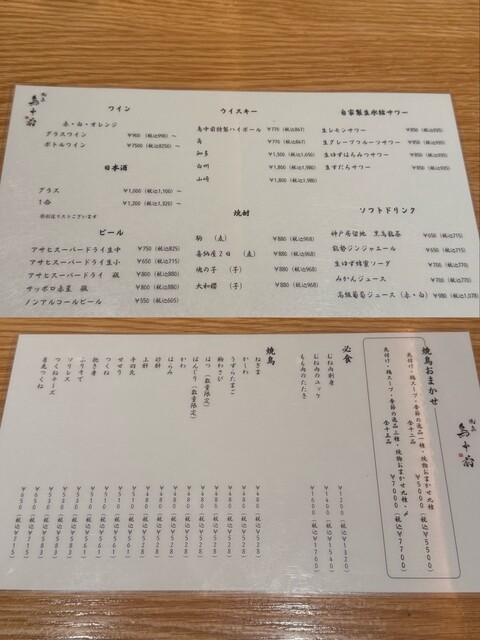 ワイン
赤・白・オレンジ
グラスワイン ¥900（税込990）〜
ボトルワイン ¥7500（税込8250）〜
日本酒
グラス ¥1,000（税込1,100）〜
1合 ¥1,200（税込1,320）〜
別紙リストございます
ビール
アサヒスーパードライ生中 ¥750（税込825）
アサヒスーパードライ生小 ¥650（税込715）
アサヒスーパードライ 瓶 ¥800（税込880）
サッポロ赤星 瓶 ¥800（税込880）
ノンアルコールビール ¥550（税込605）
ウイスキー
特製ハイボール ¥770（税込847）
¥770（税込847）
知多 ¥1,500（税込1,650）
白州 ¥1,800（税込1,980）
山崎 ¥1,800（税込1,980）
焼酎
（麦） ¥880（税込968）
喜納屋2日 （麦） ¥880（税込968）
（芋） ¥880（税込968）
大和桜 （芋） ¥880（税込968）
自家製生氷結サワー
生レモンサワー ¥850（税込935）
生グレープフルーツサワー ¥850（税込935）
生ゆずはちみつサワー ¥850（税込935）
生すだちサワー ¥850（税込935）
ソフトドリンク
神戸居留地 黒烏龍茶 ¥650（税込715）
能勢ジンジャエール ¥650（税込715）
生ゆず蜂蜜ソーダ ¥700（税込770）
みかんジュース ¥700（税込770）
高級葡萄ジュース（赤・白） ¥980（税込1,078）
焼鳥おまかせ
先付け・鶏スープ・季節の逸品一種・焼物おまかせ九種
全十二品 ¥5000（税込¥5500）
先付け・鶏スープ・季節の逸品三種・焼物おまかせ九種
全十五品 ¥7000（税込¥7700）
必食
むね肉刺身 ¥1200（税込¥1320）
むね肉のユッケ ¥1400（税込¥1540）
もも肉のたたき ¥1600（税込¥1760）
焼鳥
ねぎま ¥480（税込¥528）
かしわ ¥480（税込¥528）
うずらたまご ¥480（税込¥528）
胸わさび ¥480（税込¥528）
はつ（数量限定） ¥480（税込¥528）
ぼんじり（数量限定） ¥480（税込¥528）
かわ ¥480（税込¥528）
はらみ ¥480（税込¥528）
砂肝 ¥480（税込¥528）
上肝 ¥480（税込¥528）
手羽先 ¥510（税込¥561）
せせり ¥510（税込¥561）
抱き身 ¥510（税込¥561）
ふりそで ¥530（税込¥583）
ソリレス ¥530（税込¥583）
つくね ¥530（税込¥583）
つくねチーズ ¥650（税込¥715）
月見つくね ¥650（税込¥715）